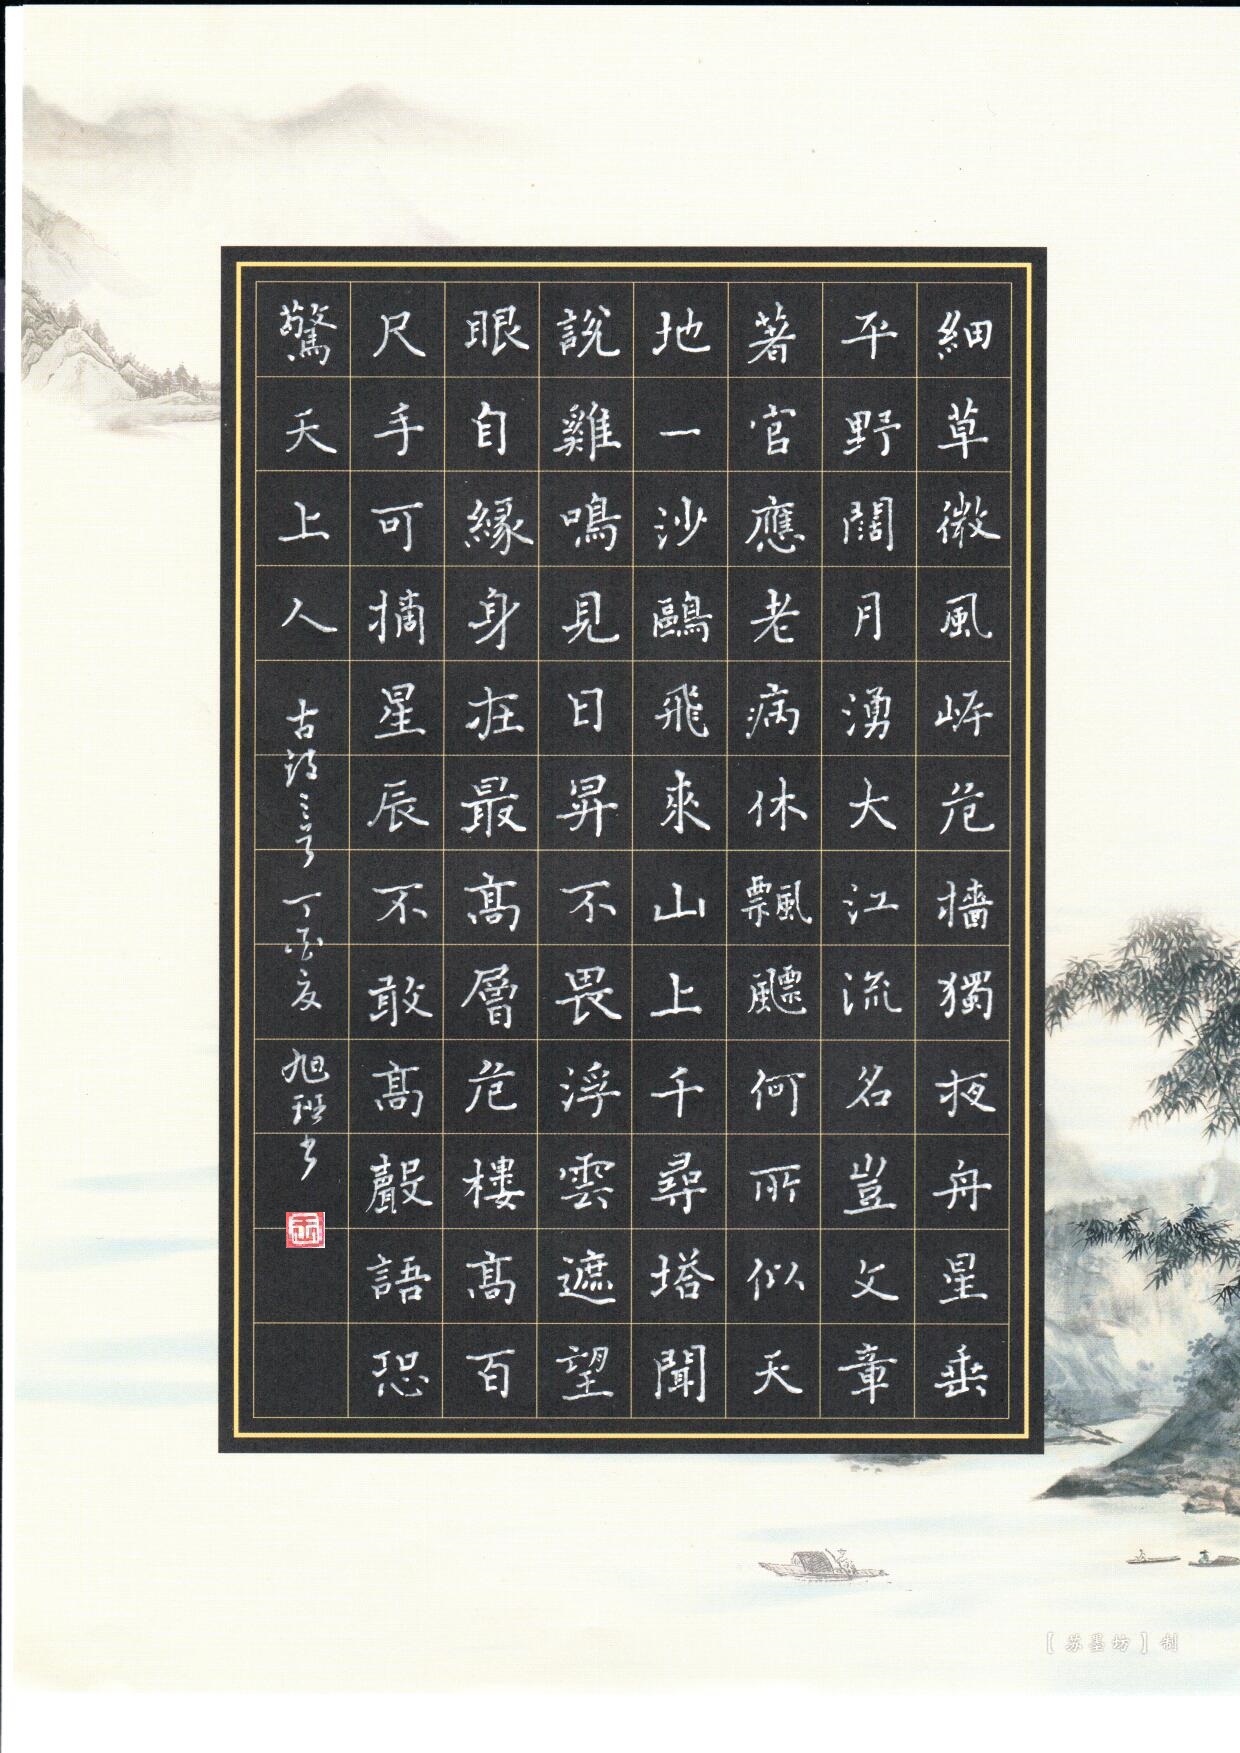 細草微風岸危檣獨夜舟星垂
平野闊月湧大江流名豈文章
著官應老病休飄飄何所似天
地一沙鷗飛來山上千尋塔聞
説雞鳴見日昇不畏浮雲遮望
眼自緣身在最高層危樓高百
尺手可摘星辰不敢高聲語恐
驚天上人 古詩三首 丁酉夏 旭 书
[苏墨坊]制